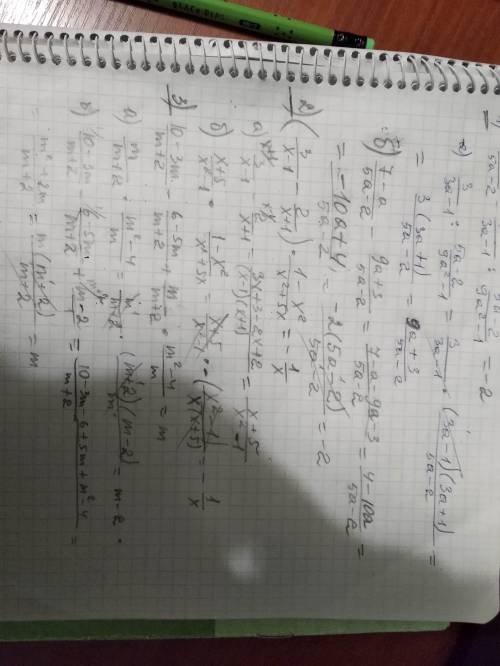 5a-2   3a-1 : 9a²-1 = -2
а) 3/(3a-1) : (5a-2)/(9a²-1) = 3/(3a-1) · (3a-1)(3a+1)/(5a-2) =
= 3(3a+1)/(5a-2) = (9a+3)/(5a-2)
б) (7-a)/(5a-2) - (9a+3)/(5a-2) = (7-a-9a-3)/(5a-2) = (4-10a)/(5a-2) =
= (-10a+4)/(5a-2) = -2(5a-2)/(5a-2) = -2
2) (3/(x-1) - 2/(x+1)) · (1-x²)/(x²+5x) = -1/x
а) 3/(x-1) - 2/(x+1) = (3x+3-2x+2)/((x-1)(x+1)) = (x+5)/(x²-1)
б) (x+5)/(x²-1) · (1-x²)/(x²+5x) = (x+5)/(x²-1) · -(x²-1)/(x(x+5)) = -1/x
3) (10-3m)/(m+2) - (6-5m)/(m+2) + m/(m+2) · (m²-4)/m = m
а) m/(m+2) · (m²-4)/m = m/(m+2) · (m+2)(m-2)/m = m-2
б) (10-3m)/(m+2) - (6-5m)/(m+2) + m-2 = (10-3m-6+5m+m²-4)/(m+2) =
= (m²+2m)/(m+2) = m(m+2)/(m+2) = m